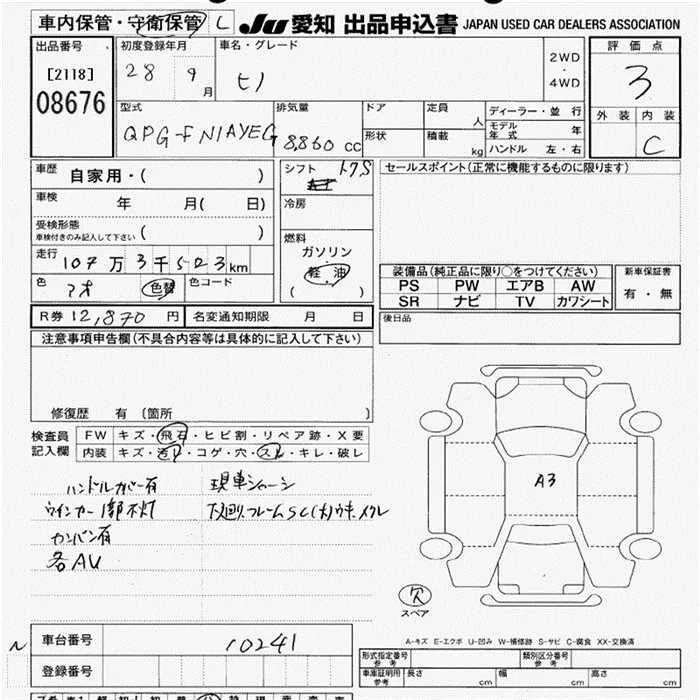 車内保管・守衛保管 L JU 愛知 出品申込書 JAPAN USED CAR DEALERS ASSOCIATION
出品番号 初度登録年月 車名・グレード 2WD・4WD 評価点
[2118] 28 9月 ヒノ 3
08676 型式 排気量 ドア 定員 人 ディーラー・並行 外装 内装
QPG-FN1AYEG 8,860 cc 形状 積載 kg モデル年式 年 C
ハンドル 左・右
車歴 自家用・( ) シフト トクS セールスポイント(正常に機能するものに限ります)
車検 年 月( 日) 冷房
受検形態 ( )
車検付きのみ記入して下さい
燃料
走行 107万3千523km ガソリン
軽油
( )
色 アオ 色替 色コード
装備品(純正品に限り○をつけてください) 新車保証書
PS PW エアB AW 有・無
SR ナビ TV カワシート
R券 12,870 円 名変通知期限 月 日 後日品
注意事項申告欄(不具合内容等は具体的に記入して下さい)
修復歴 有 〔箇所 〕
検査員記入欄 FW キズ・飛石・ヒビ割・リペア跡・X要
内装 キズ・汚レ・コゲ・穴・スレ・キレ・破レ
ハンドルカバー有 現車シャーシ
ウインカー1部不灯 下廻り、フレームSC(大)ウキ、メクレ
カンバン有
各AU
A3
欠
スペア
A-キズ E-エクボ U-凹み W-補修跡 S-サビ C-腐食 XX-交換済
車台番号 10241
登録番号
型式指定番号 参考 類別区分番号 参考
車庫証明用 参考 長さ cm 幅 cm 高さ cm